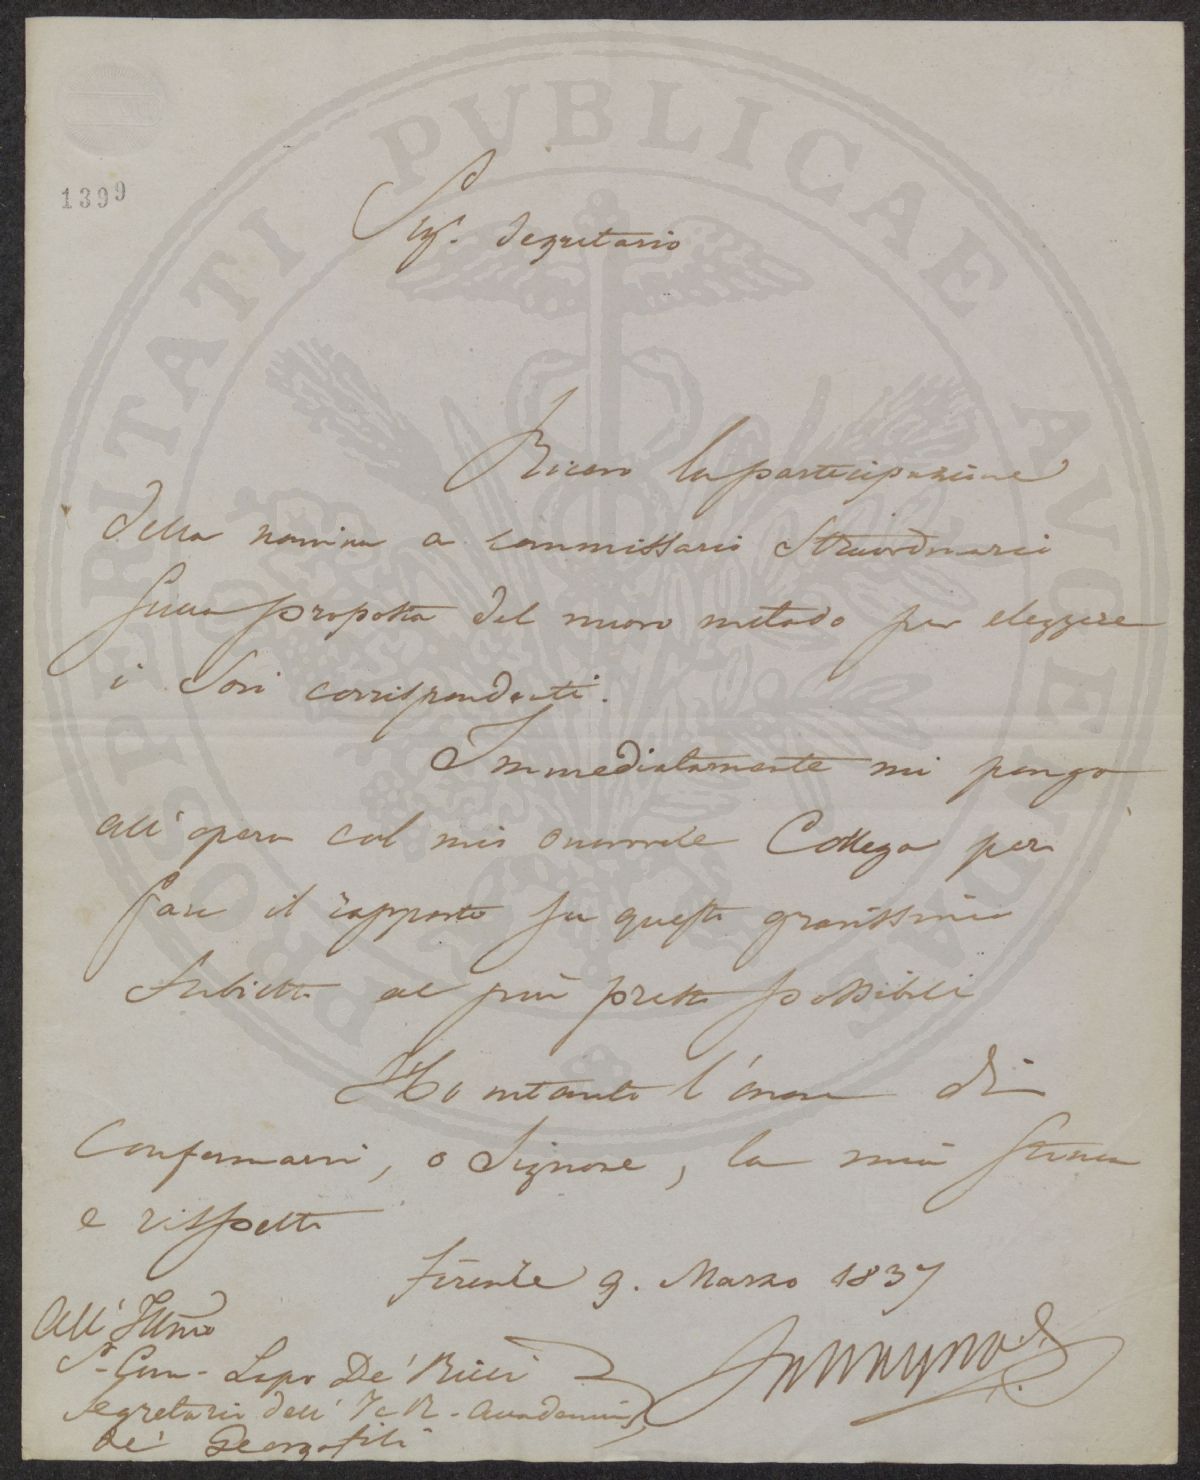 PROSPERITATI PVBLICAE AVGENDAE
1399
Sig. Segretario
Ricevo la partecipazione
della nomina a commissario straordinario
sulla proposta del nuovo metodo per eleggere
i Soci corrispondenti.
Immediatamente mi pongo
all' opera col mio onorevole Collega per
fare il rapporto su questo gravissimo
Subietto al più presto possibile
Ho intanto l'onore di
Confermarvi, o Signore, la mia stima
e rispetto
Firenze 9. Marzo 1837
All' Illmo
Sr. Cav. Lapo De' Ricci
Segretario dell' I e R. Accademia
de' Georgofili